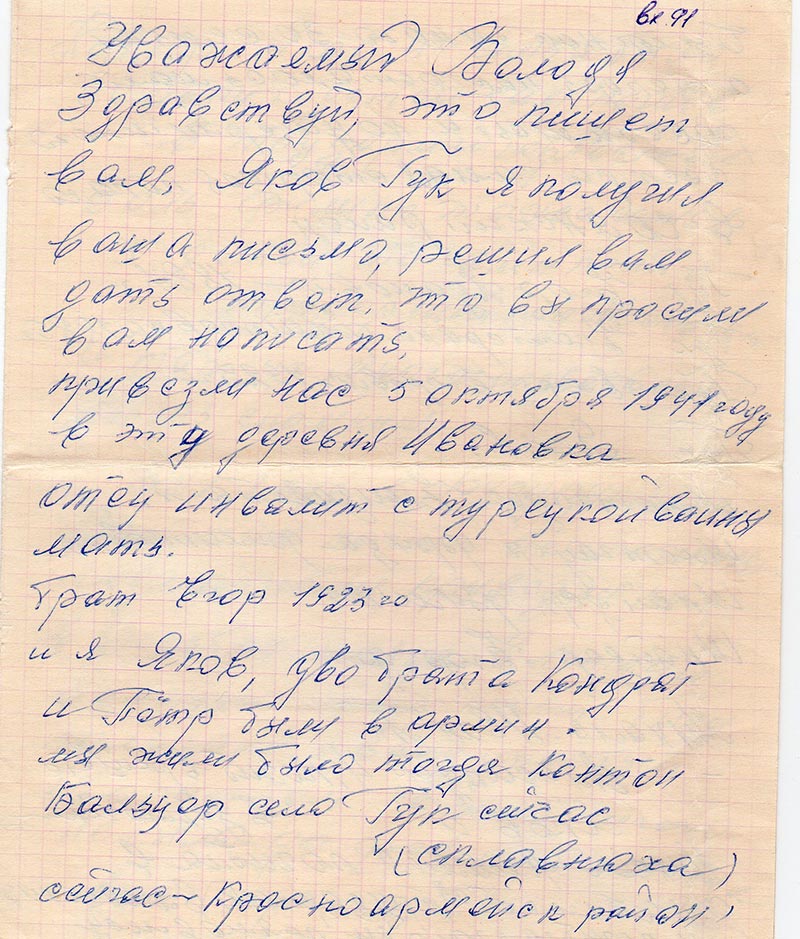 вх 91
Уважаемый Володя
Здравствуй, это пишет
вам, Яков Гук я получил
ваша письмо, решил вам
дать ответ, что вы просили
вам написать,
привезли нас 5 октября 1941 году
в эту деревня Ивановка
отец инвалит с турецкой ваины
мать.
брат Егор 1923 го
и я Яков, дво брата Кондрат
и Пётр были в армии.
мы жили было тогда Контон
Бальцор село Гук сейчас
(сплавнюха)
сейчас - Красноармейск район,